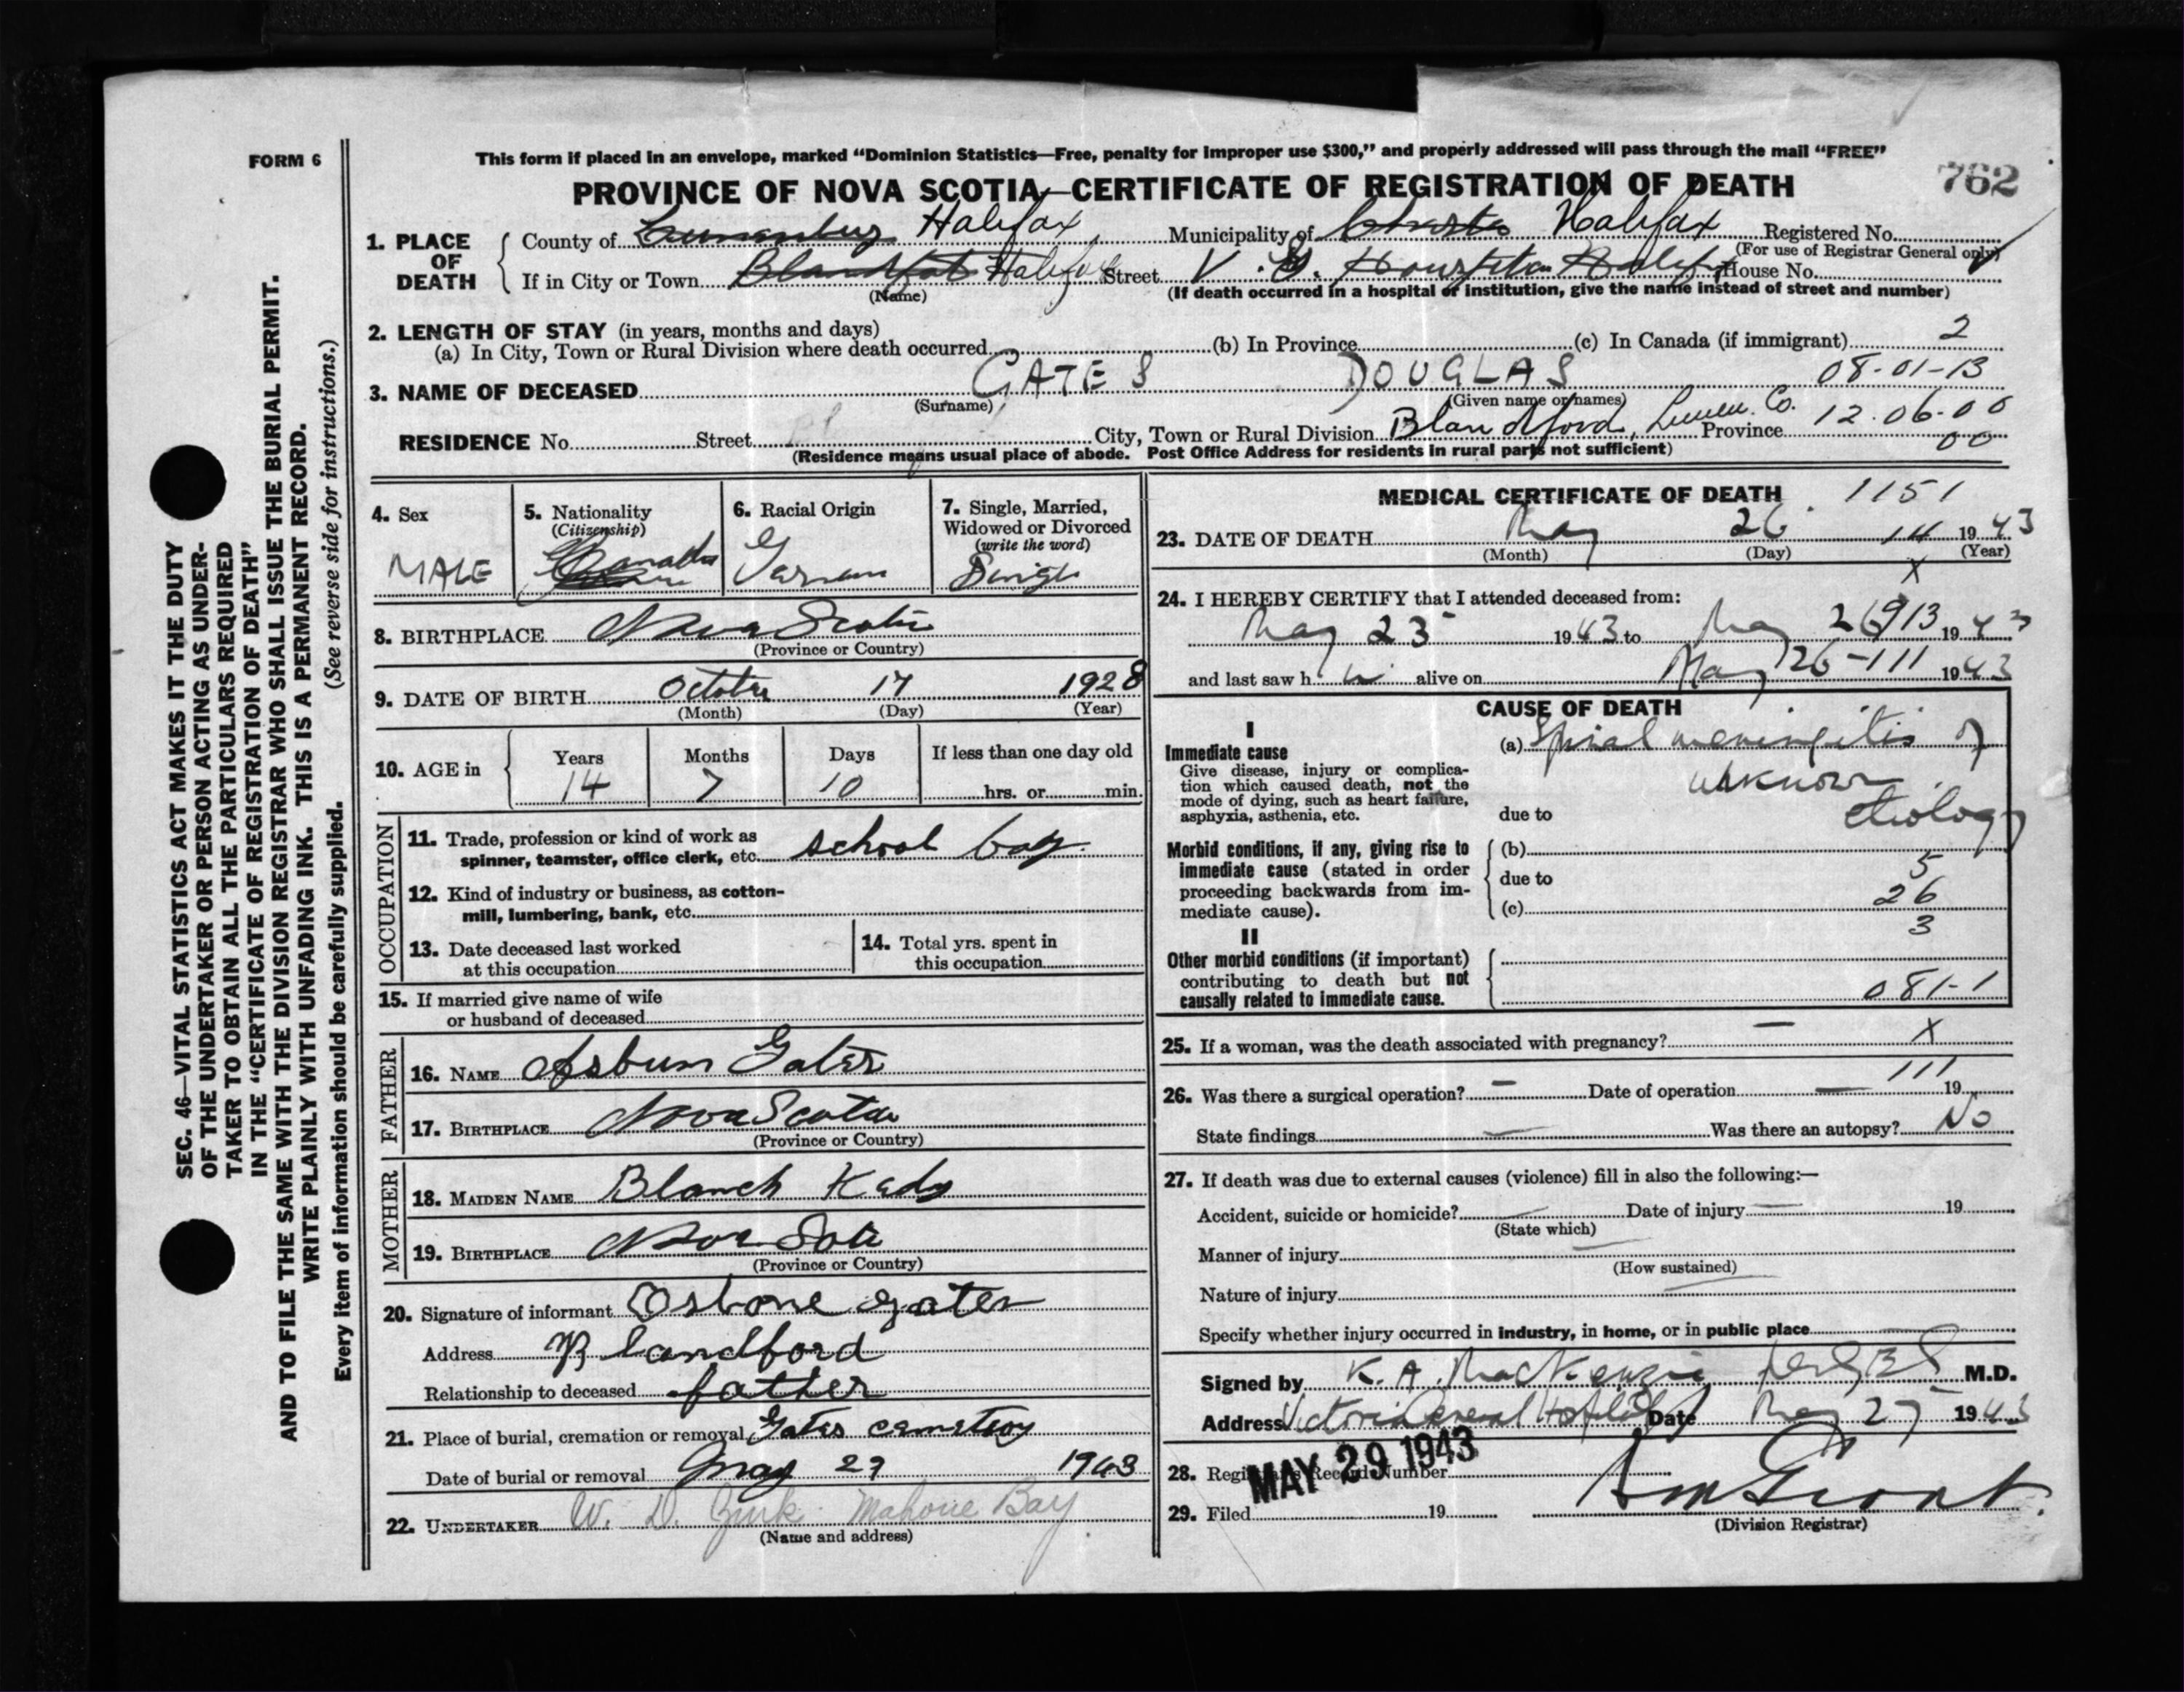 FORM 6
This form if placed in an envelope, marked “Dominion Statistics—Free, penalty for improper use $300,” and properly addressed will pass through the mail “FREE”
762
PROVINCE OF NOVA SCOTIA—CERTIFICATE OF REGISTRATION OF DEATH
1. PLACE OF DEATH
County of Lunenburg Halifax Municipality of Chester Halifax Registered No.
(For use of Registrar General only)
If in City or Town Blandford Halifax Street V. G. Hospital Halifax House No.
(Name) (If death occurred in a hospital or institution, give the name instead of street and number)
2. LENGTH OF STAY (in years, months and days)
(a) In City, Town or Rural Division where death occurred (b) In Province (c) In Canada (if immigrant) 2
3. NAME OF DECEASED GATES DOUGLAS 08-01-13
(Surname) (Given name or names)
RESIDENCE No. Street City, Town or Rural Division Blandford, Lunen. Co. Province 12.06.00
00
(Residence means usual place of abode. Post Office Address for residents in rural parts not sufficient)
4. Sex
MALE
5. Nationality
(Citizenship)
Canada
6. Racial Origin
German
7. Single, Married,
Widowed or Divorced
(write the word)
Single
8. BIRTHPLACE Nova Scotia
(Province or Country)
9. DATE OF BIRTH October 17 1928
(Month) (Day) (Year)
10. AGE in
Years Months Days If less than one day old
14 7 10 hrs. or min.
OCCUPATION
11. Trade, profession or kind of work as
spinner, teamster, office clerk, etc. school boy.
12. Kind of industry or business, as cotton-
mill, lumbering, bank, etc.
13. Date deceased last worked
at this occupation
14. Total yrs. spent in
this occupation
15. If married give name of wife
or husband of deceased
FATHER
16. NAME Asburn Gates
17. BIRTHPLACE Nova Scotia
(Province or Country)
MOTHER
18. MAIDEN NAME Blanch Kady
19. BIRTHPLACE Nova Scotia
(Province or Country)
20. Signature of informant Osborne Gates
Address Blandford
Relationship to deceased father
21. Place of burial, cremation or removal Gates cemetery
Date of burial or removal May 29 1943
22. UNDERTAKER W. D. Zink Mahone Bay
(Name and address)
MEDICAL CERTIFICATE OF DEATH 1151
23. DATE OF DEATH May 26 14 1943
(Month) (Day) (Year)
X
24. I HEREBY CERTIFY that I attended deceased from:
May 23 1943 to May 26 913 1943
and last saw h im alive on May 26 -111 1943
CAUSE OF DEATH
I
Immediate cause
Give disease, injury or complica-
tion which caused death, not the
mode of dying, such as heart failure,
asphyxia, asthenia, etc.
(a) Spinal meningitis of
unknown
due to etiology
Morbid conditions, if any, giving rise to
immediate cause (stated in order
proceeding backwards from im-
mediate cause).
(b)
5
due to
26
(c)
3
II
Other morbid conditions (if important)
contributing to death but not
causally related to immediate cause.
081-1
25. If a woman, was the death associated with pregnancy? — X
111
26. Was there a surgical operation? — Date of operation — 19
State findings — Was there an autopsy? No
27. If death was due to external causes (violence) fill in also the following:—
Accident, suicide or homicide? — Date of injury — 19
(State which)
Manner of injury —
(How sustained)
Nature of injury —
Specify whether injury occurred in industry, in home, or in public place
Signed by K. A. MacKenzie M.D.
Address Victoria General Hospital Date May 27 1943
28. Registrar's Record Number
MAY 29 1943
29. Filed 19
(Division Registrar)
SEC. 46—VITAL STATISTICS ACT MAKES IT THE DUTY
OF THE UNDERTAKER OR PERSON ACTING AS UNDER-
TAKER TO OBTAIN ALL THE PARTICULARS REQUIRED
IN THE “CERTIFICATE OF REGISTRATION OF DEATH”
AND TO FILE THE SAME WITH THE DIVISION REGISTRAR WHO SHALL ISSUE THE BURIAL PERMIT.
WRITE PLAINLY WITH UNFADING INK. THIS IS A PERMANENT RECORD.
Every item of information should be carefully supplied. (See reverse side for instructions.)